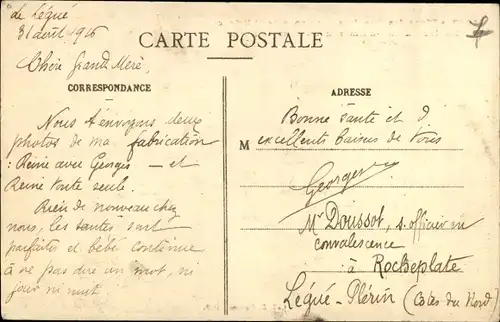 de Légué
31 août 1916
CARTE POSTALE
Chère Grand Mère,
CORRESPONDANCE
Nous t'envoyons deux
photos de ma fabrication
: Reine avec Georges — et
Reine toute seule.
Rien de nouveau chez
nous, les santés sont
parfaites et bébé continue
à ne pas dire un mot, ni
jour ni nuit
ADRESSE
Bonne santé et d'
M excellents baisers de tous
Georges
Mr Doussot, s. officier en
convalescence
à Rocheplate
Légué-Plérin (Côtes du Nord)